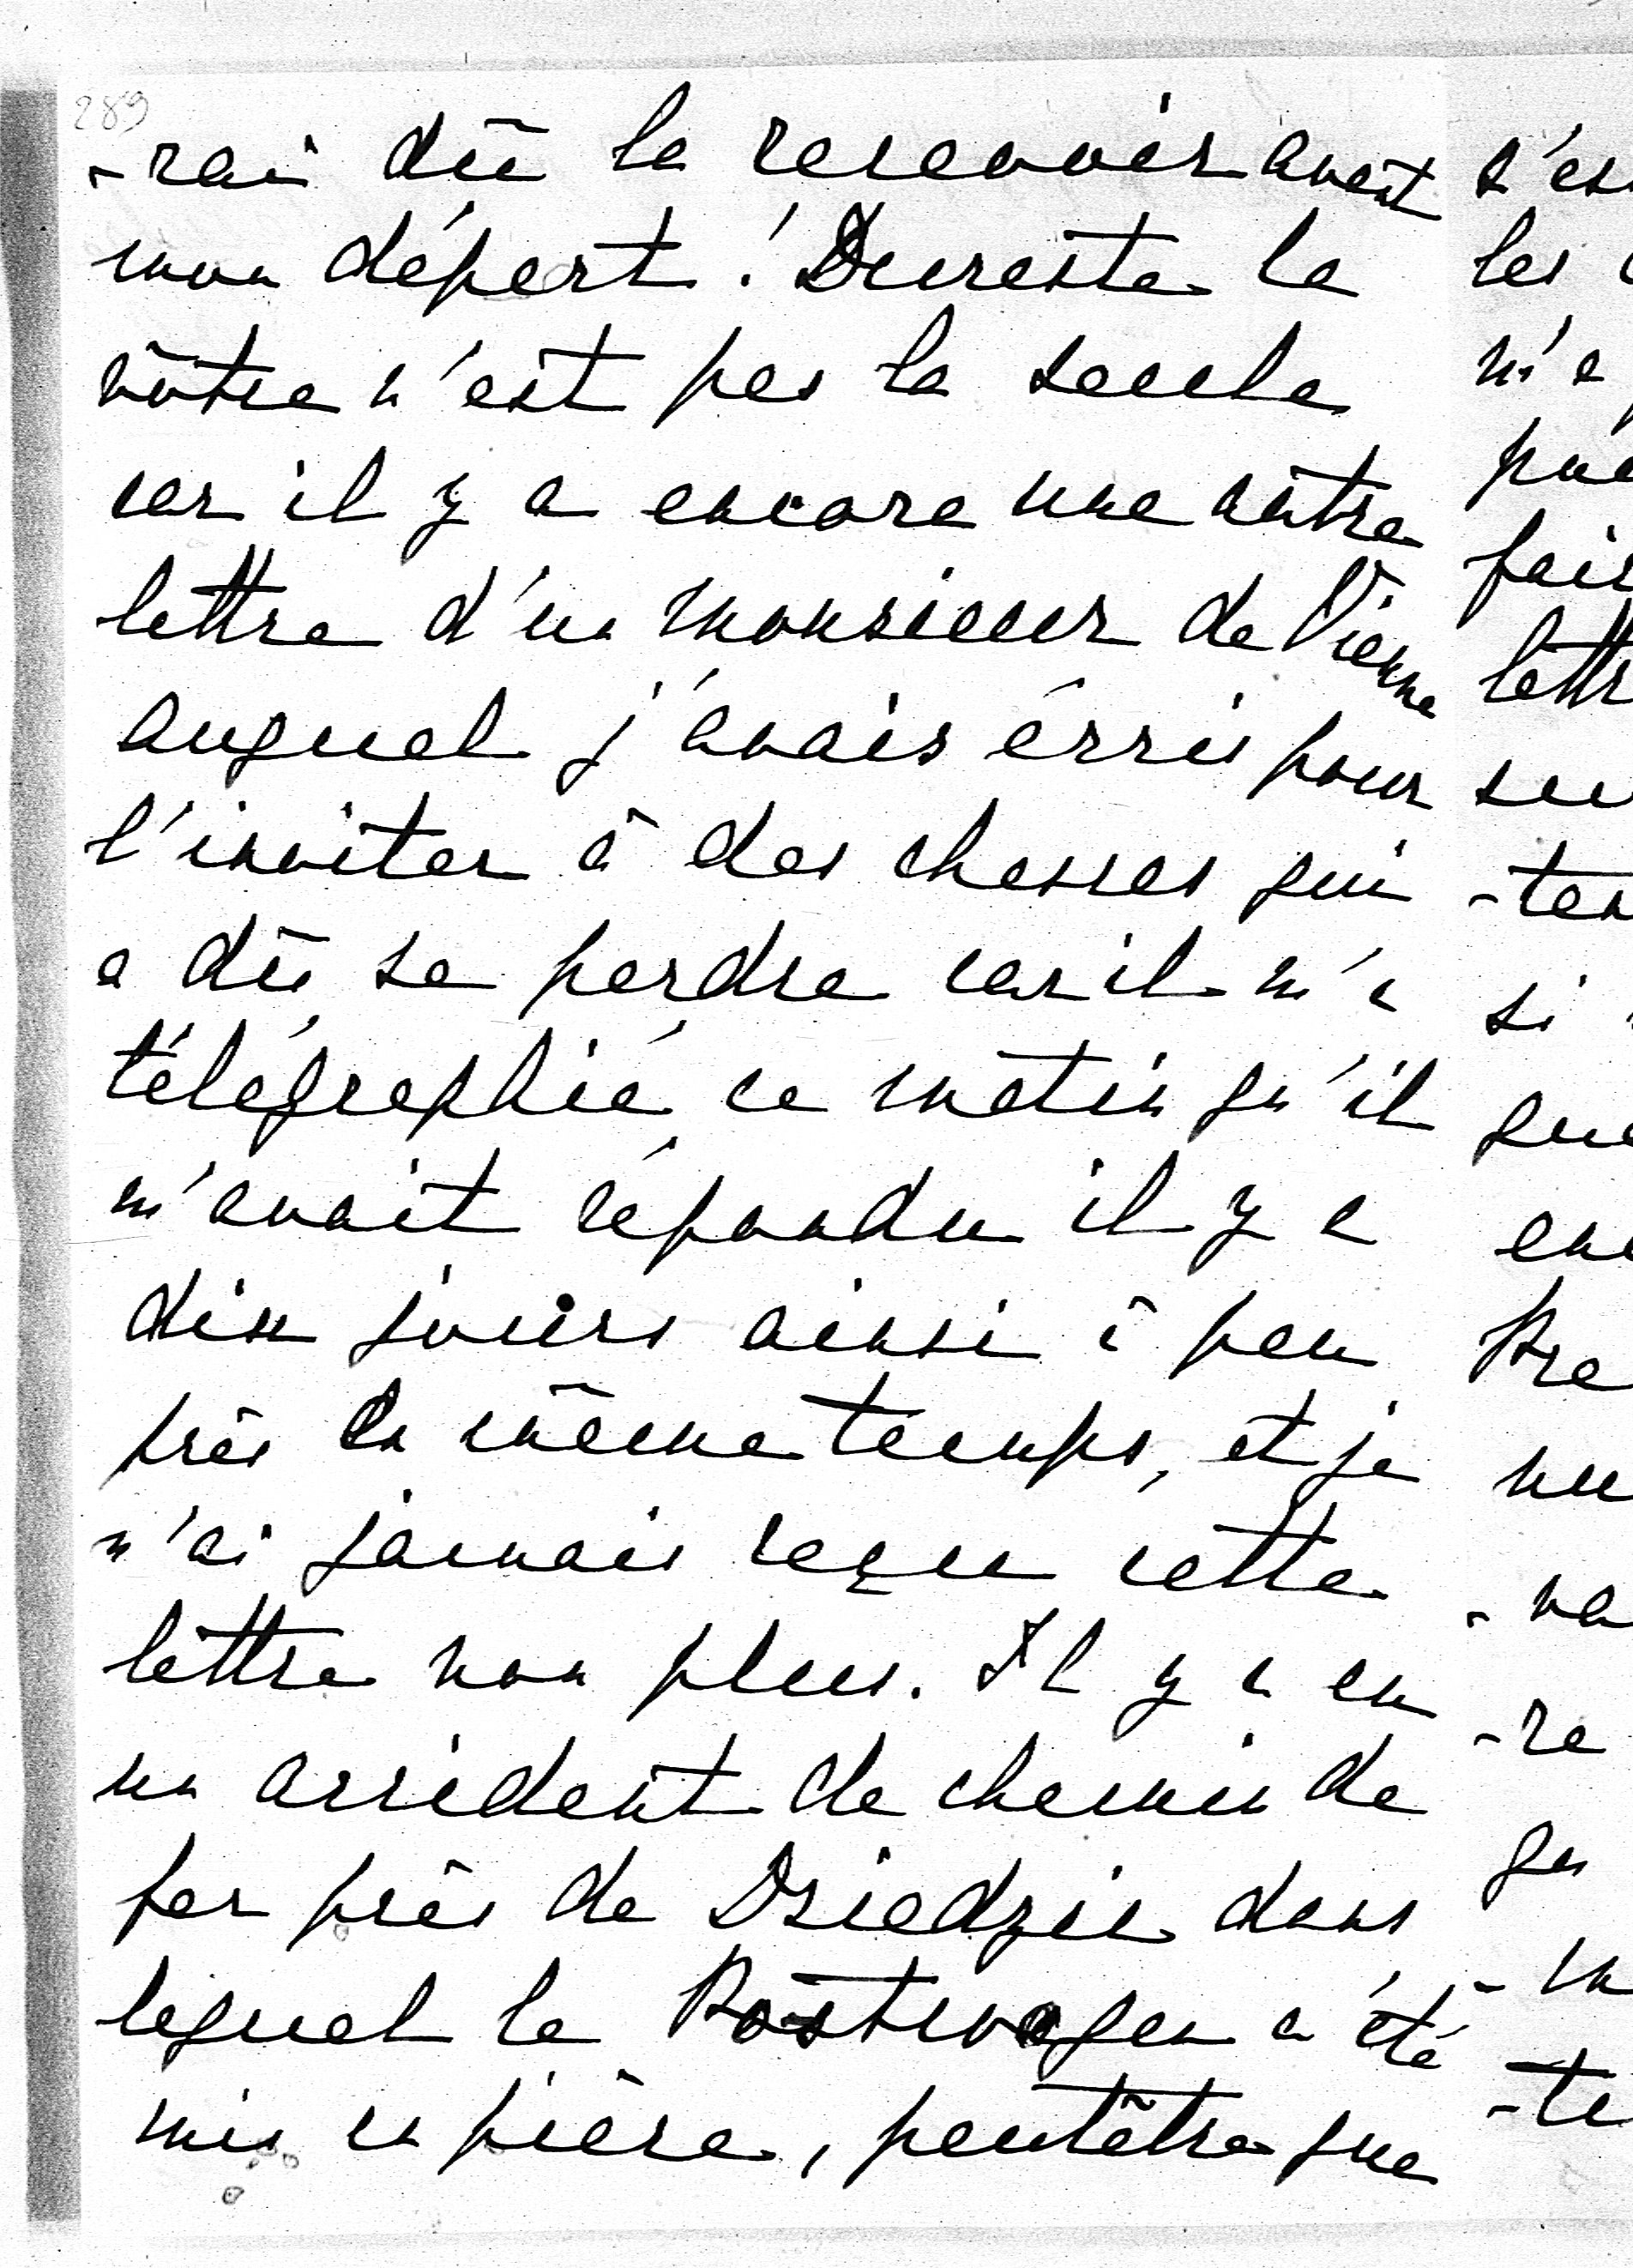 289
-rai dû la recevoir avant
mon départ! Dureste la
vôtre n'est pas la seule
car il y a encore une autre
lettre d'un monsieur de Vienne
auquel j'avais écris pour
l'inviter à des chasses qui
a dû se perdre car il m'a
télégraphié ce matin qu'il
m'avait répondu il y a
dix jours ainsi à peu
près en même temps, et je
n'ai jamais reçue cette
lettre non plus. Il y a eu
un accident de chemin de
fer près de Dziedzic dans
lequel le Postwagen a été
mis en pièce, peutêtre que